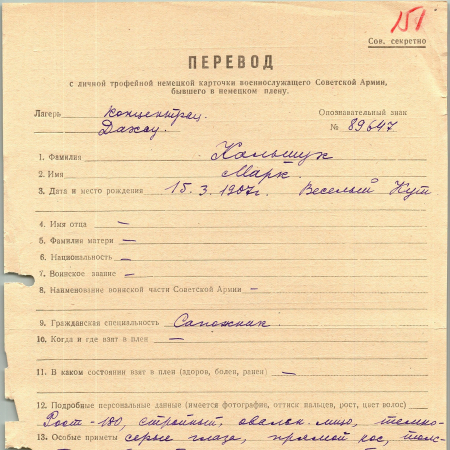 151
Сов. секретно
ПЕРЕВОД
с личной трофейной немецкой карточки военнослужащего Советской Армии,
бывшего в немецком плену.
Лагерь концентрац. Опознавательный знак
Дахау. № 89647
1. Фамилия Кальщук
2. Имя Марк.
3. Дата и место рождения 15.3.1907г. Веселый Кут
4. Имя отца —
5. Фамилия матери —
6. Национальность —
7. Воинское звание —
8. Наименование воинской части Советской Армии —
9. Гражданская специальность Сапожник
10. Когда и где взят в плен —
11. В каком состоянии взят в плен (здоров, болен, ранен) —
12. Подробные персональные данные (имеется фотография, оттиск пальцев, рост, цвет волос)
Рост - 180, стройный, овальн. лицо, темно-
13. Особые приметы серые глаза, прямой нос,